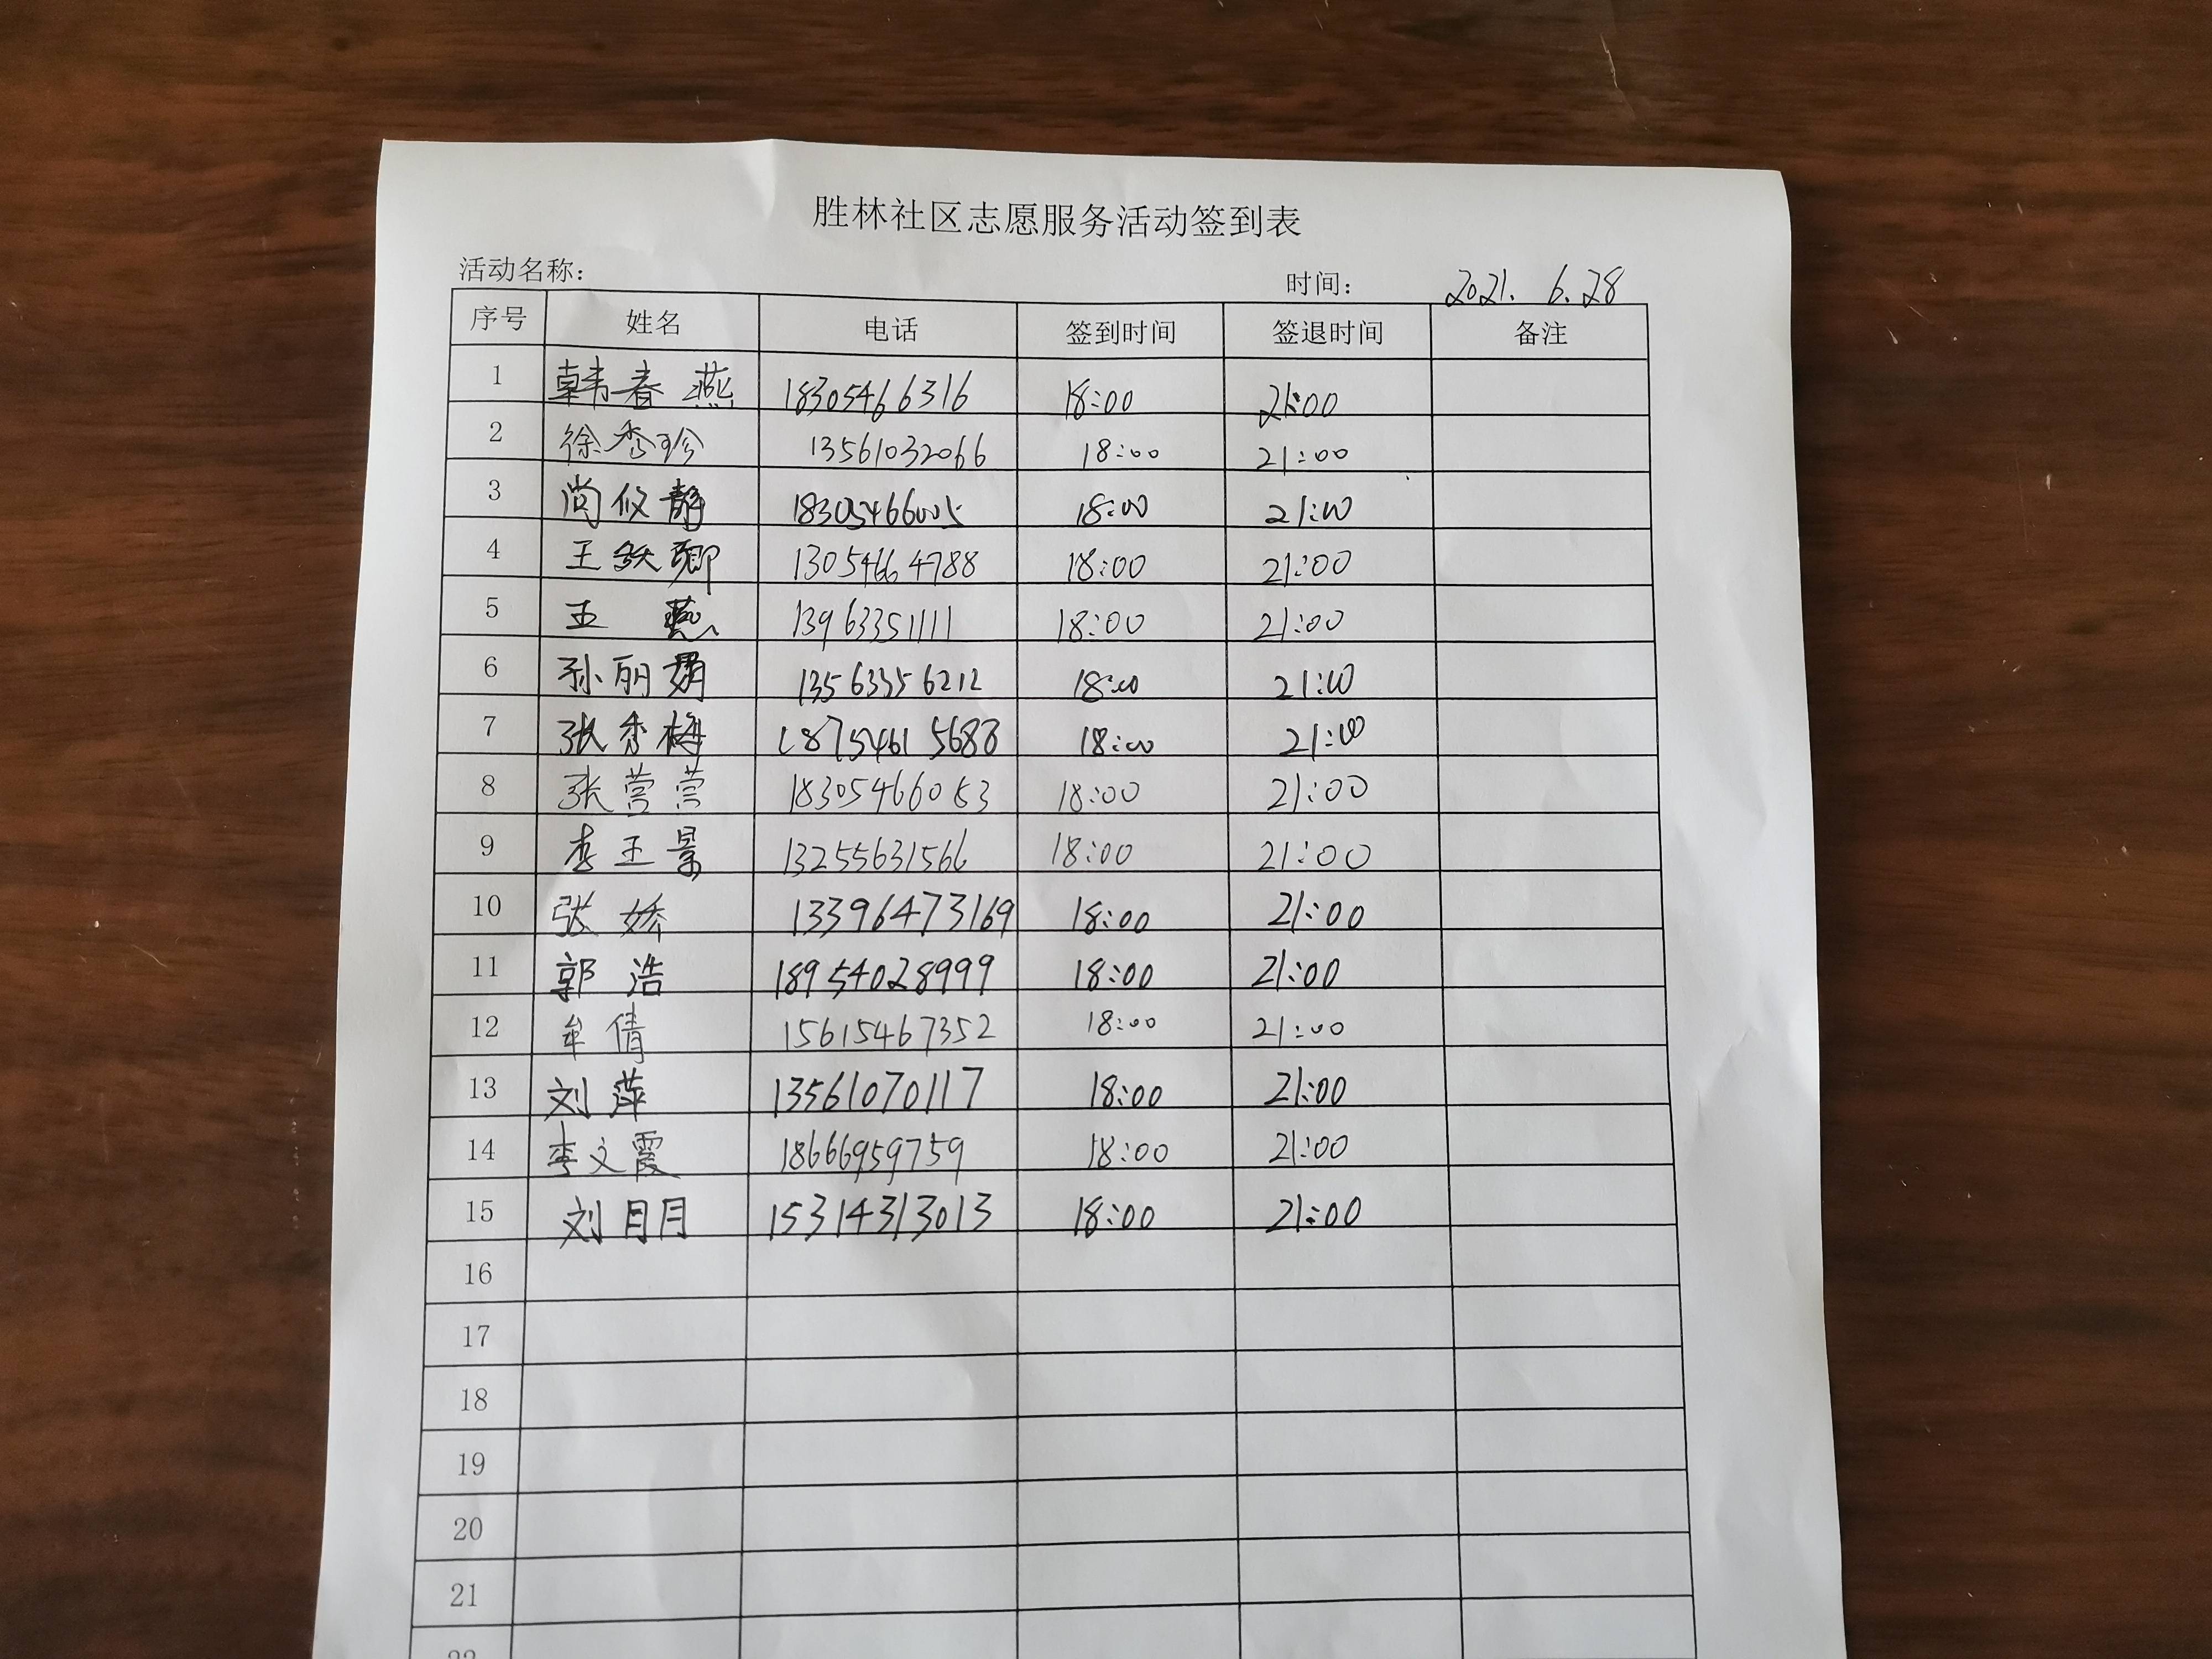 胜林社区志愿服务活动签到表
活动名称： 时间： 2021. 6.28
序号 姓名 电话 签到时间 签退时间 备注
1 韩春燕 18305466316 18:00 21:00
2 徐秀珍 13561032066 18:00 21:00
3 尚攸静 18305466005 18:00 21:00
4 王 卿 13054664788 18:00 21:00
5 王燕 13963351111 18:00 21:00
6 孙丽娟 13563356212 18:00 21:00
7 张秀梅 18754615688 18:00 21:00
8 张营营 18305466053 18:00 21:00
9 李玉景 13255631566 18:00 21:00
10 张娇 13396473169 18:00 21:00
11 郭浩 18954028999 18:00 21:00
12 牟倩 15615467352 18:00 21:00
13 刘萍 13561070117 18:00 21:00
14 李文霞 18666959759 18:00 21:00
15 刘月月 15314313013 18:00 21:00
16
17
18
19
20
21